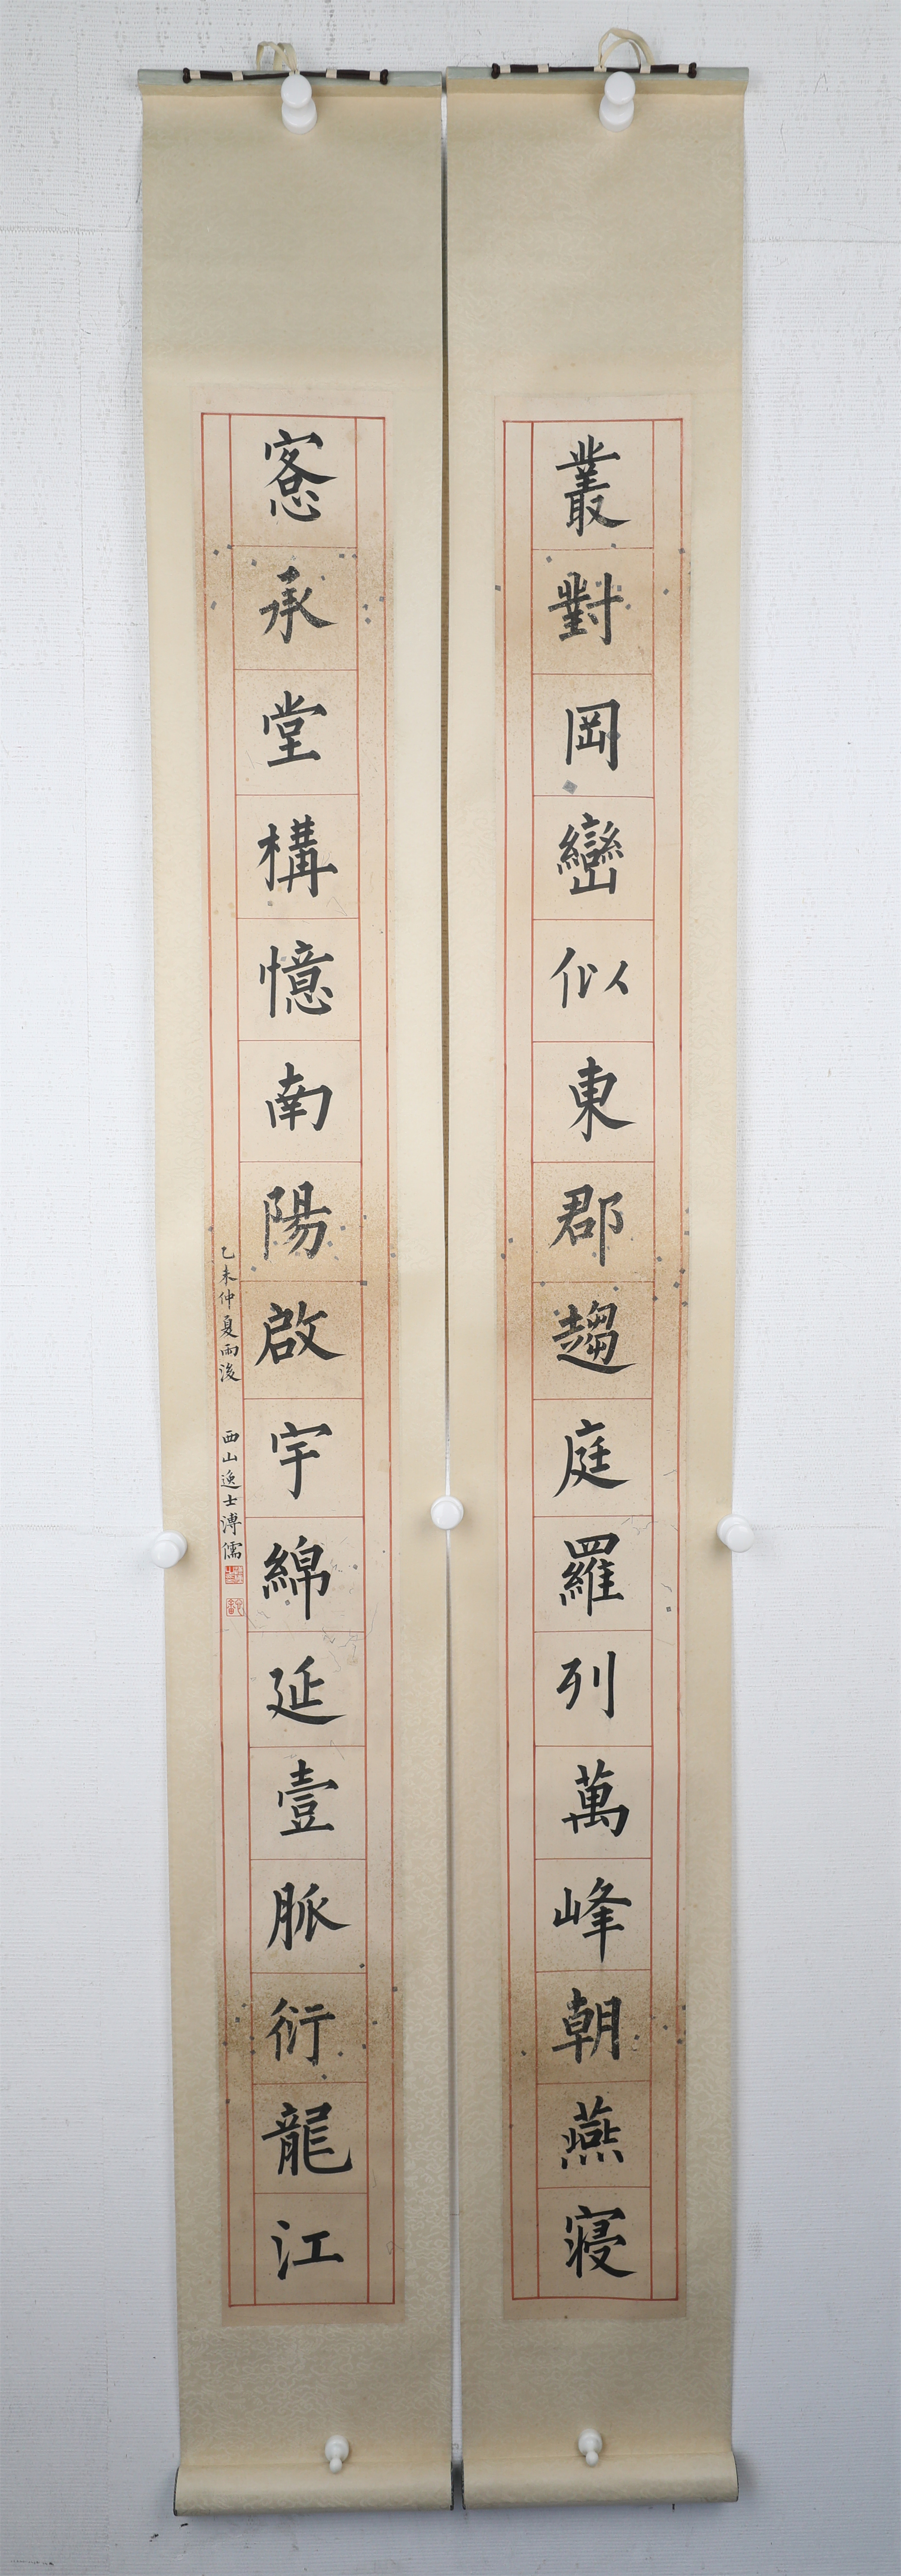 叢對岡巒似東郡趨庭羅列萬峰朝燕寢
愙承堂構憶南陽啟宇綿延壹脈衍龍江
乙未仲夏雨後 西山逸士溥儒